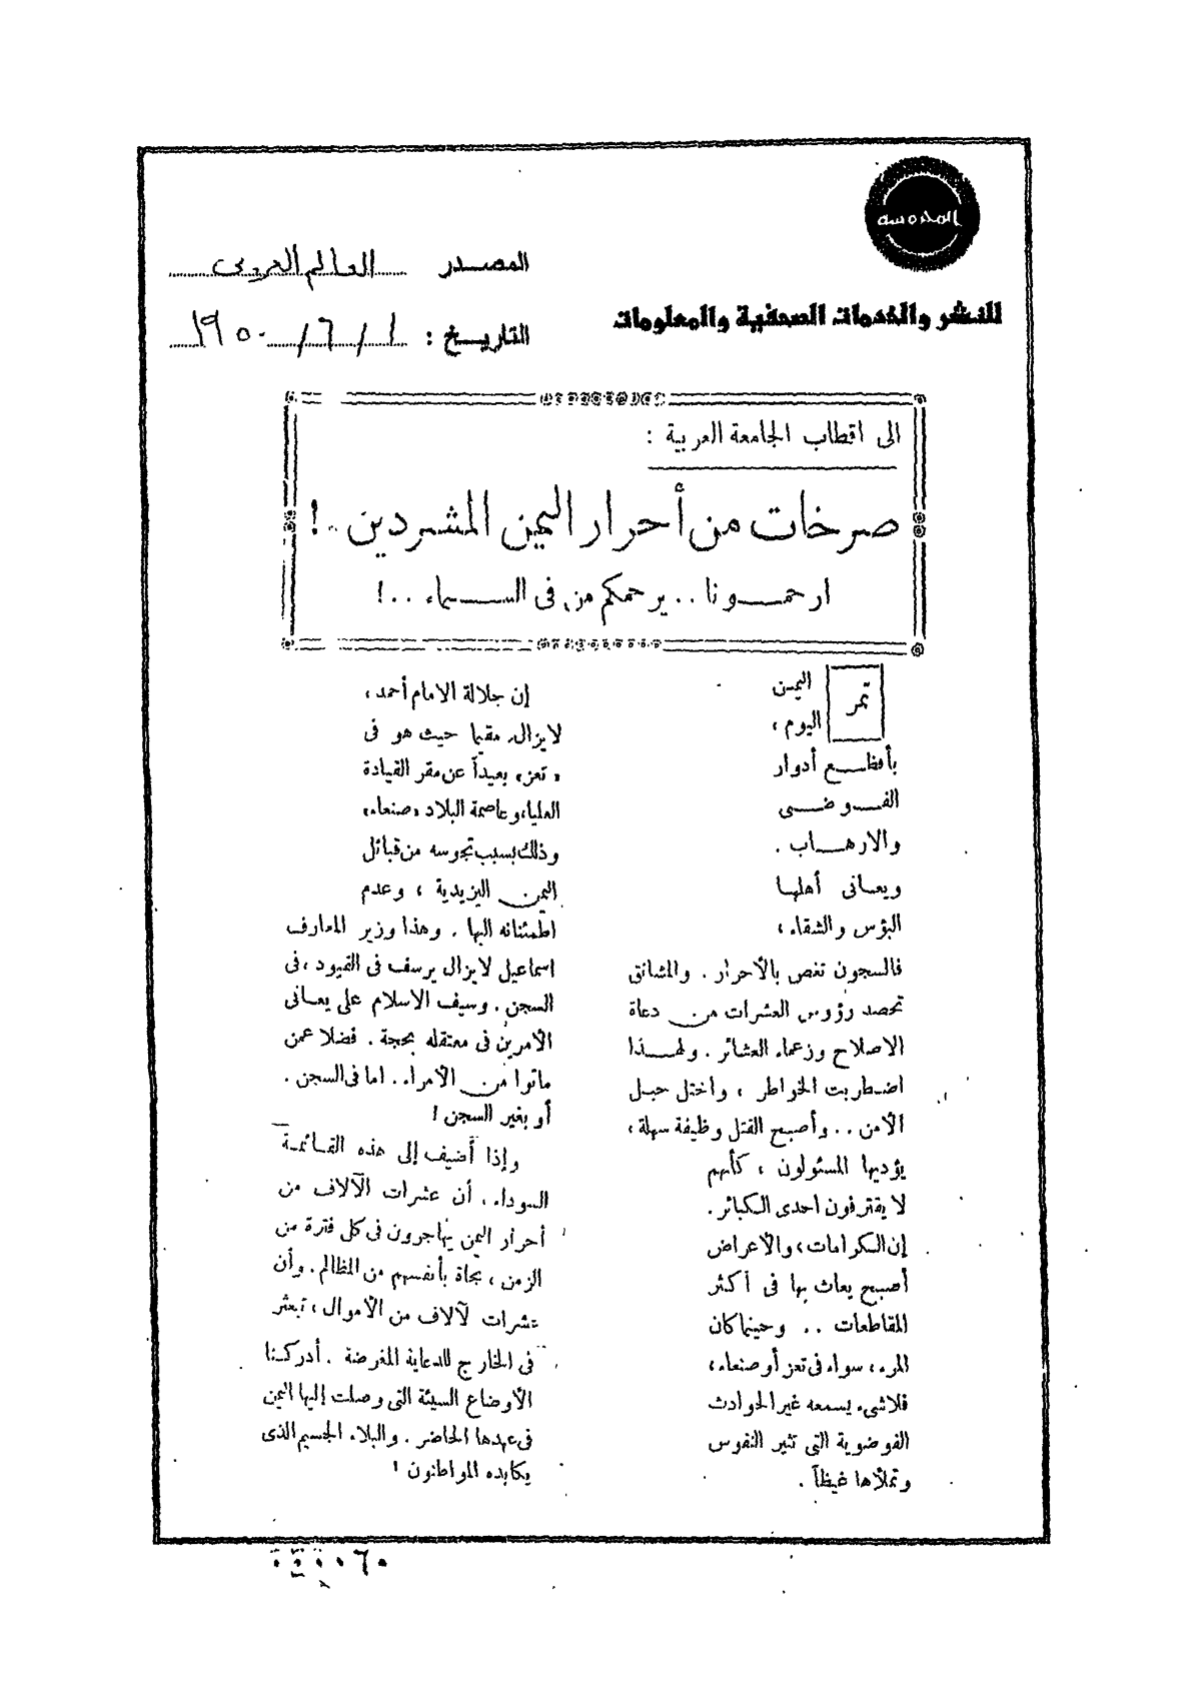 المحروسة
للنشر والخدمات الصحفية والمعلومات
المصدر العالم العربى
التاريخ : ١ / ٦ / ١٩٥٠
الى اقطاب الجامعة العربية :
صرخات من أحرار اليمن المشردين ..!
ارحمونا .. يرحمكم من فى السماء ..!
تمر اليمن
اليوم ،
بأفظع أدوار
الفوضى
والارهاب .
ويعانى أهلها
البؤس والشقاء ،
فالسجون تغص بالأحرار . والمشانق
تحصد رؤوس العشرات من دعاة
الاصلاح وزعماء العشائر . ولهذا
اضطربت الخواطر ، واختل حبل
الأمن .. وأصبح القتل وظيفة سهلة ،
يؤديها المسئولون ، كأنهم
لا يقترفون احدى الكبائر .
إن الكرامات ، والأعراض
أصبح يعاث بها فى أكثر
المقاطعات .. وحيثما كان
المرء ، سواء فى تعز أو صنعاء ،
فلاشىء يسمعه غير الحوادث
الفوضوية التى تثير النفوس
وتملأها غيظاً .
إن جلالة الامام أحمد ،
لا يزال مقيما حيث هو فى
« تعز » بعيداً عن مقر القيادة
العليا ، وعاصمة البلاد « صنعاء »
وذلك بسبب تجوسه من قبائل
اليمن اليزيدية ، وعدم
اطمئنانه اليها . وهذا وزير المعارف
اسماعيل لا يزال يرسف فى القيود ، فى
السجن . وسيف الاسلام على يعانى
الأمرين فى معتقله بحجة . فضلا عمن
ماتوا من الأمراء .. اما فى السجن .
أو بغير السجن !
وإذا أضيف إلى هذه القائمة
السوداء . أن عشرات الآلاف من
أحرار اليمن يهاجرون فى كل فترة من
الزمن ، نجاة بأنفسهم من المظالم . وأن
عشرات لآلاف من الأموال ، تبعثر
فى الخارج للدعاية المغرضة . أدركنا
الأوضاع السيئة التى وصلت إليها اليمن
فى عهدها الحاضر . والبلاء الجسيم الذى
يكابده المواطنون !